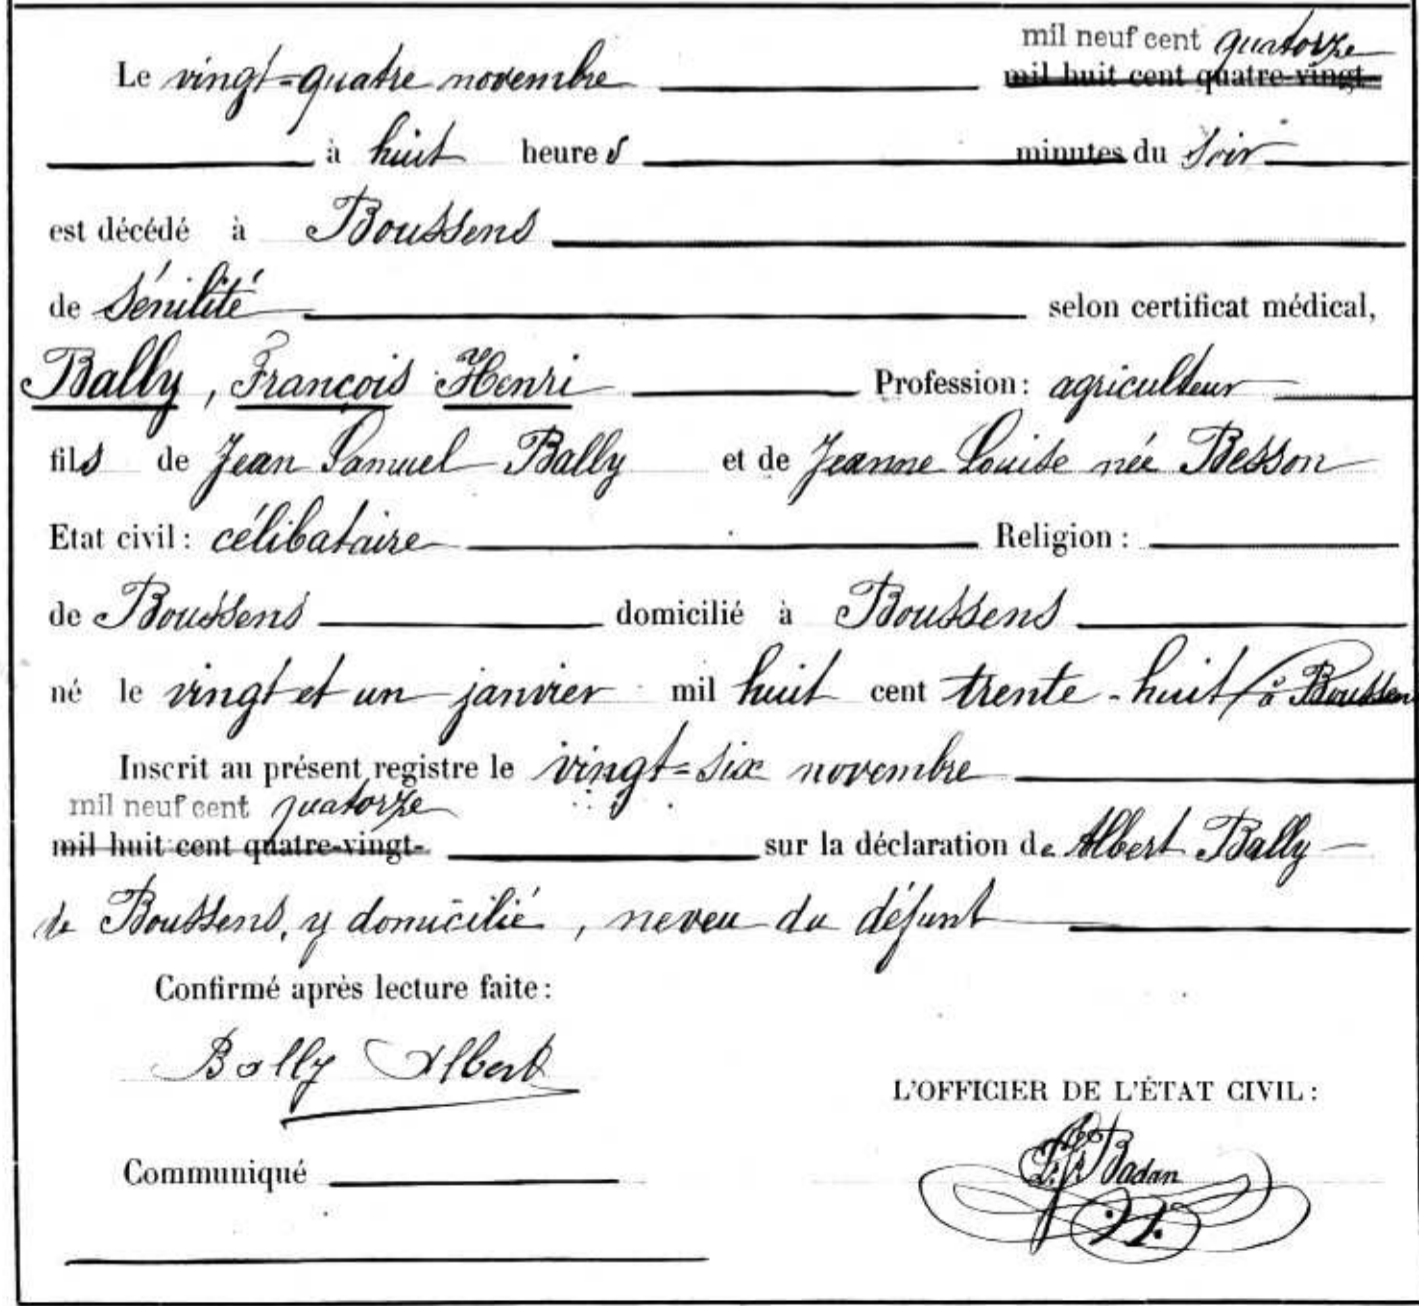 mil neuf cent quatorze
Le vingt-quatre novembre mil huit cent quatre-vingt
à huit heures minutes du soir
est décédé à Boussens
de sénilité selon certificat médical,
Bally, François Henri Profession: agriculteur
fils de Jean Samuel Bally et de Jeanne Louise née Besson
Etat civil: célibataire Religion:
de Boussens domicilié à Boussens
né le vingt et un janvier mil huit cent trente-huit à Boussen
Inscrit au présent registre le vingt-six novembre
mil neuf cent quatorze
mil huit cent quatre-vingt- sur la déclaration de Albert Bally
de Boussens, y domicilié, neveu du défunt
Confirmé après lecture faite:
Bally Albert
L'OFFICIER DE L'ÉTAT CIVIL:
Badan
Communiqué